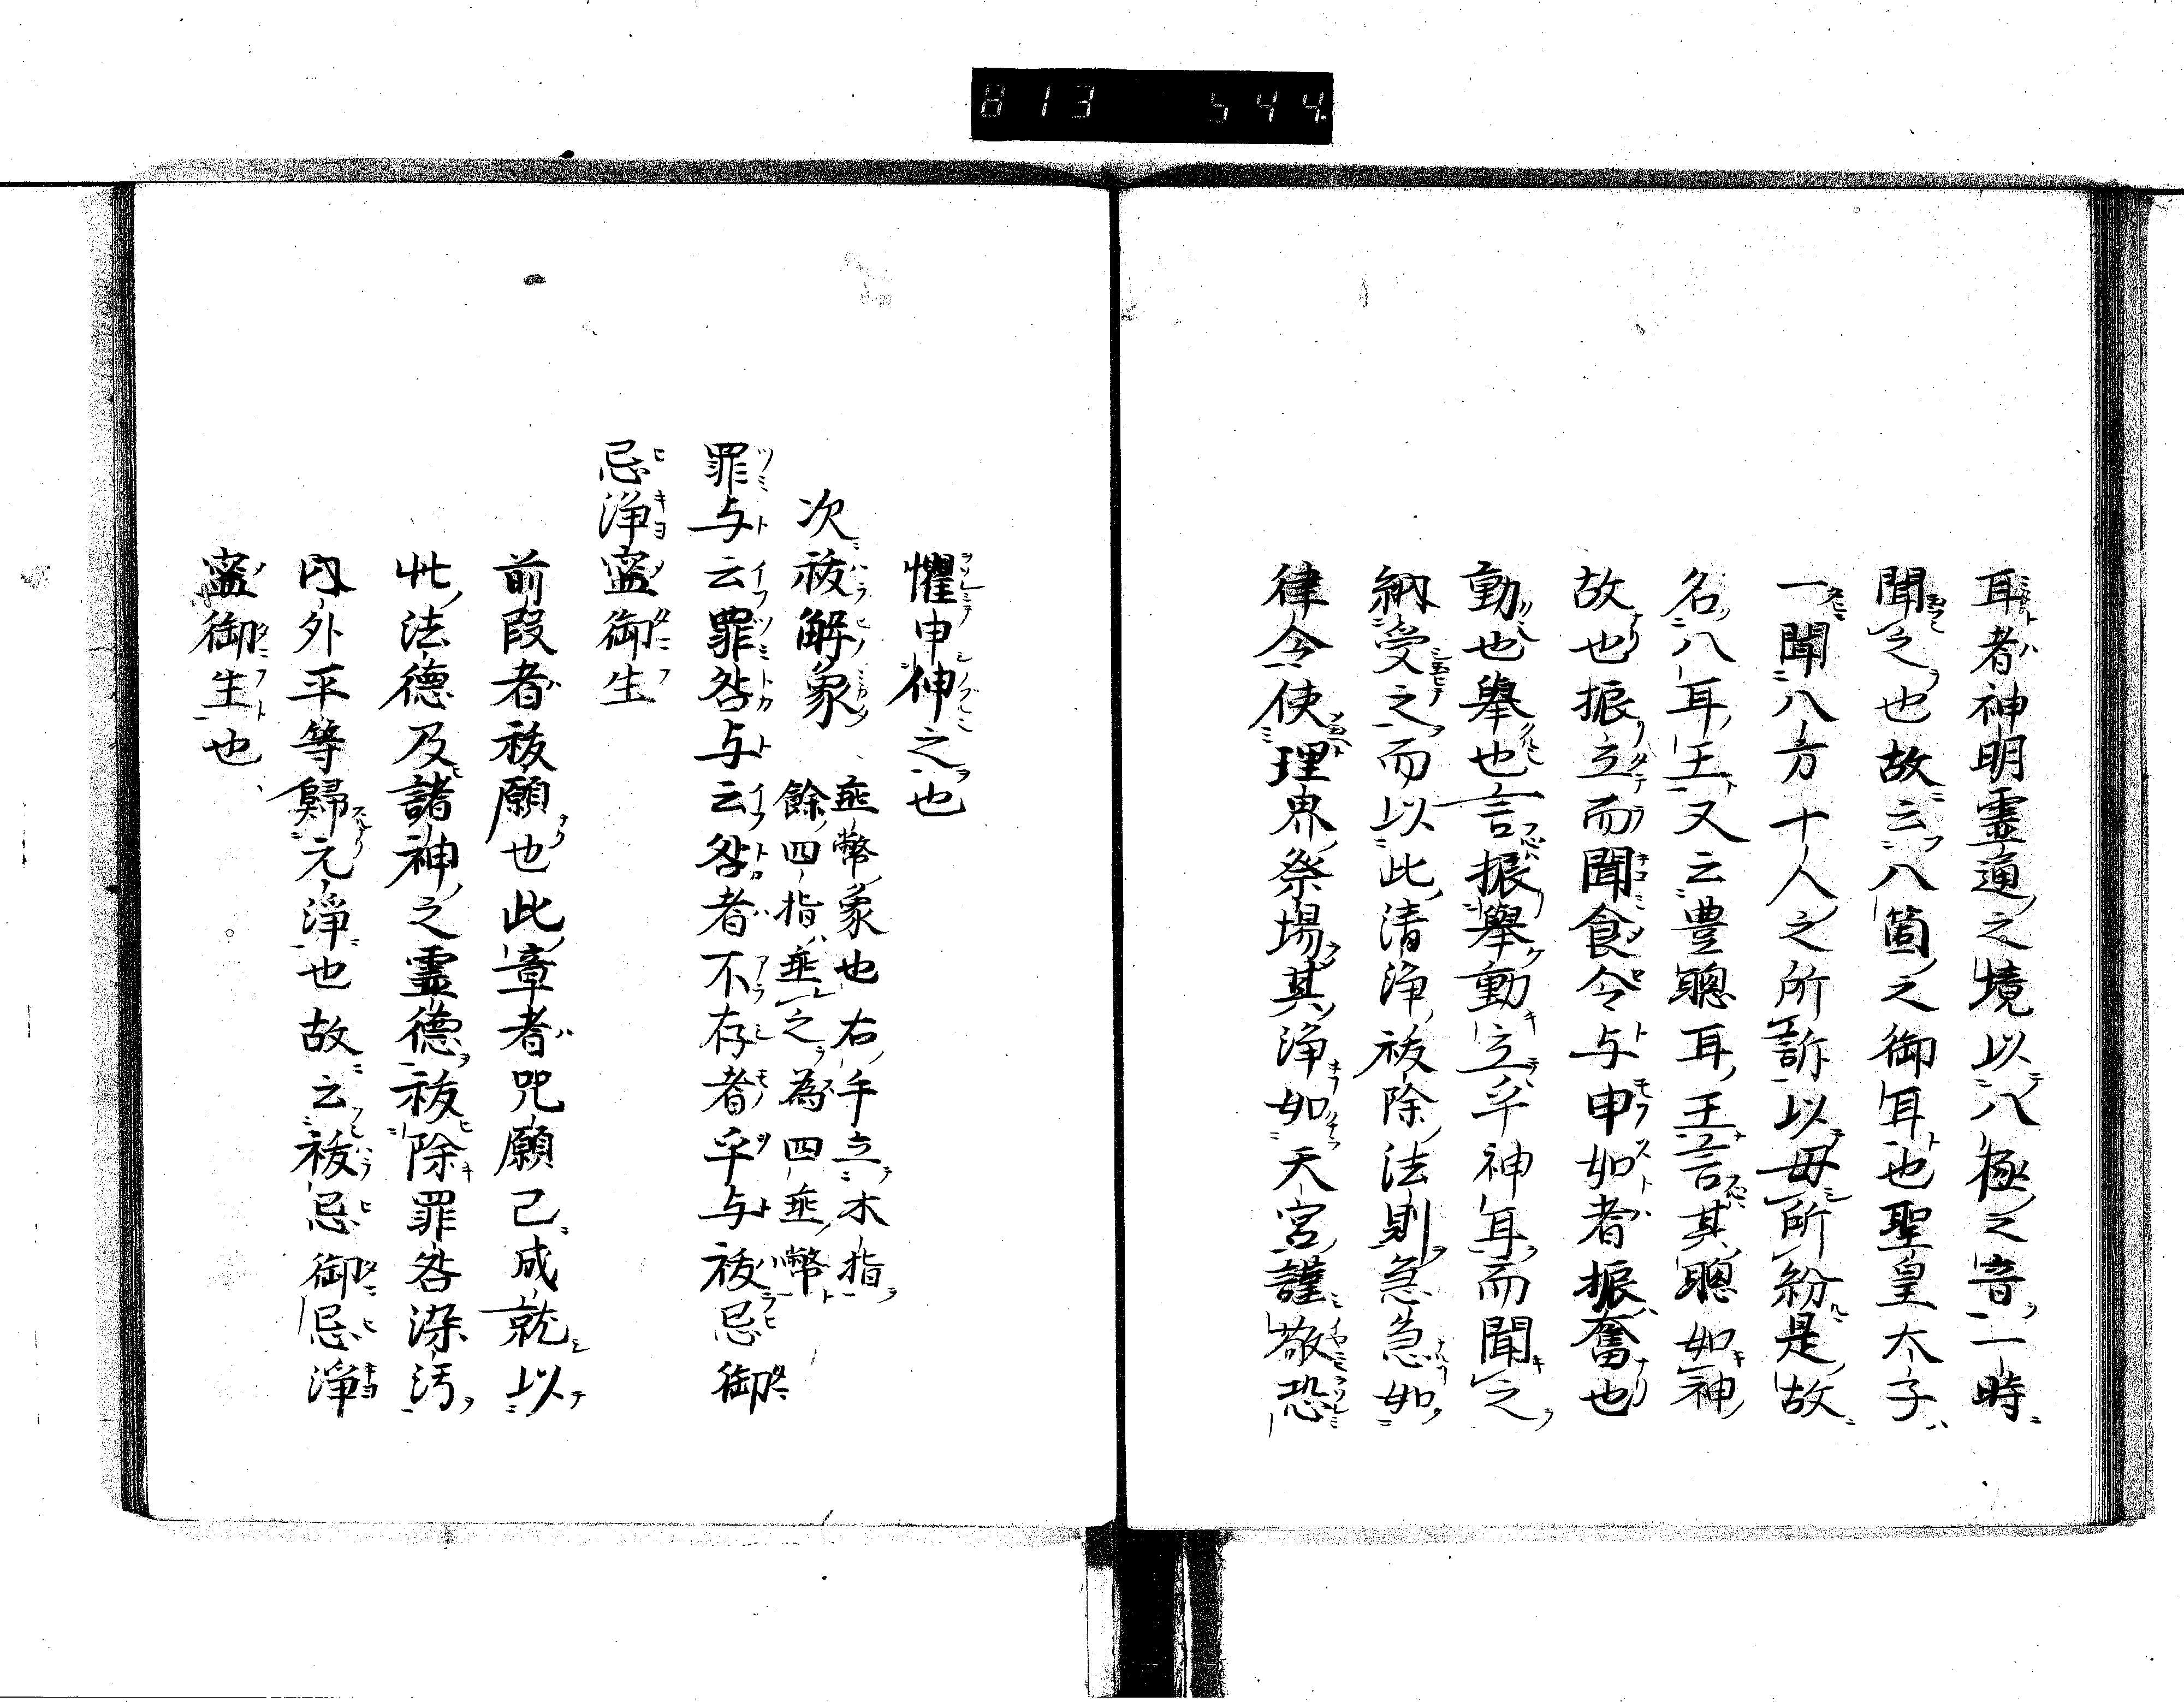 813 544
耳者神明霊通之境以八極之音一時
聞之也故云八箇之御耳也聖皇太子
一聞八方十人之所訴以毋所紛是故
名八耳王又云豊聰耳王言其聰如神
故也振立而聞食令与申如者振奮也
動也舉也言振舉動立乎神耳而聞之
納受之而以此清浄祓除法則急急如
律令使理界祭場其浄如天宮謹敬恐
懼申神之也
次祓解象
垂幣象也右手立木指
餘四指垂之為四垂幣
罪与云罪咎与云咎者不存者乎与祓忌御
忌浄寍御生
前段者祓願也此章者咒願已成就以
此法德及諸神之霊德祓除罪咎染汚
内外平等歸元浄也故云祓忌御忌浄
寍御生也